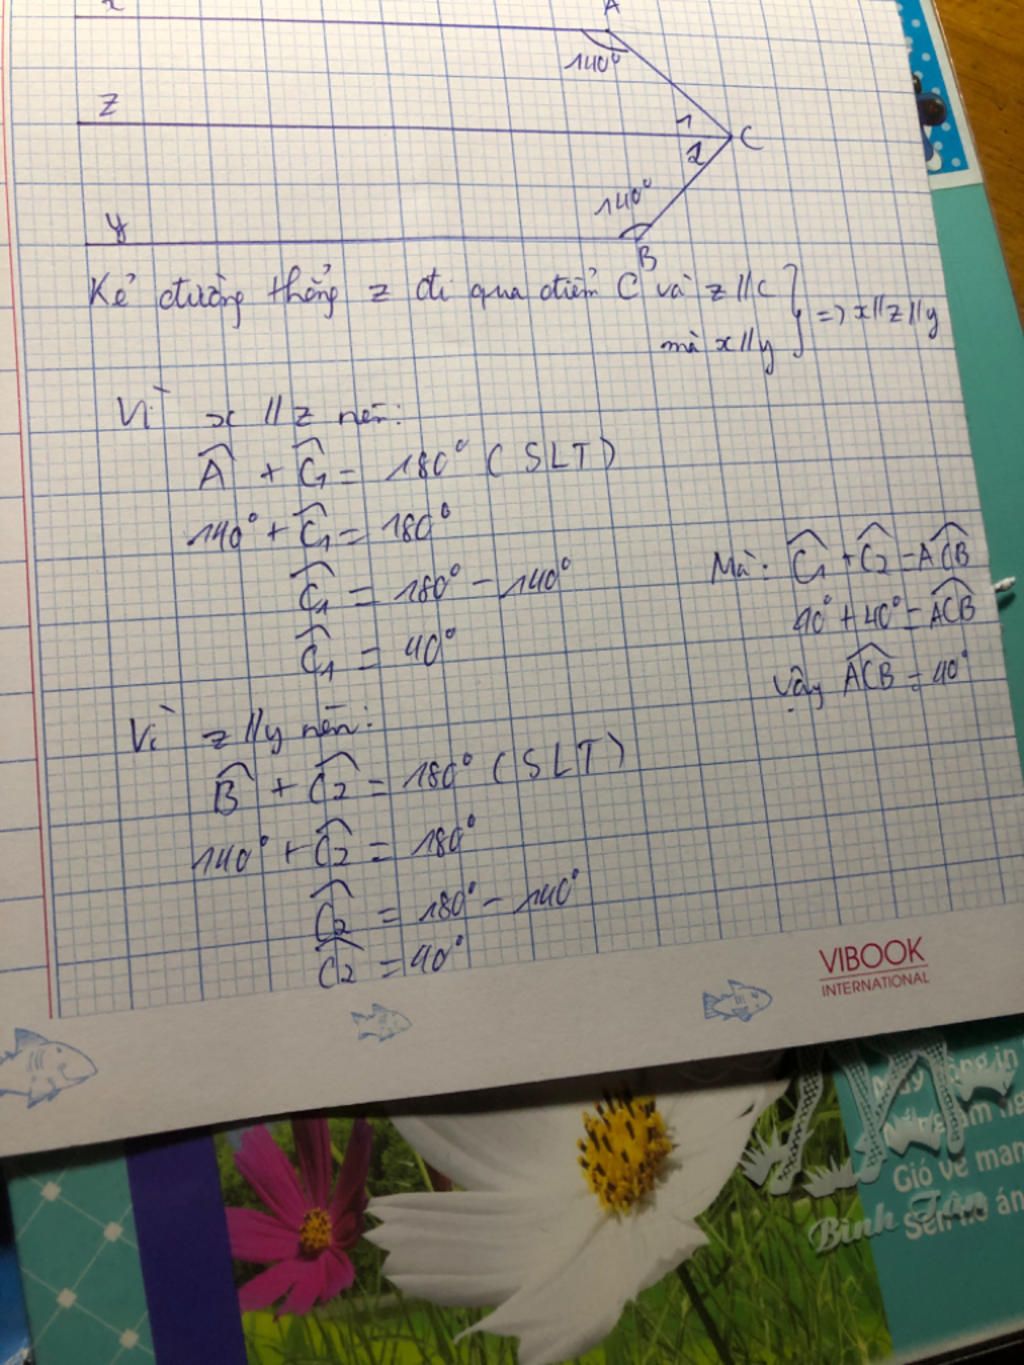 x
A
140°
z
1
C
2
140°
y
B
Kẻ đường thẳng z đi qua điểm C và z // c
mà x // y
=> x // z // y
Vì x // z nên:
A + C1 = 180° (SLT)
140° + C1 = 180°
C1 = 180° - 140°
C1 = 40°
Mà: C1 + C2 = ACB
40° + 40° = ACB
Vậy ACB = 40°
Vì z // y nên:
B + C2 = 180° (SLT)
140° + C2 = 180°
C2 = 180° - 140°
C2 = 40°
VIBOOK
INTERNATIONAL
Gió về
Bình Tân